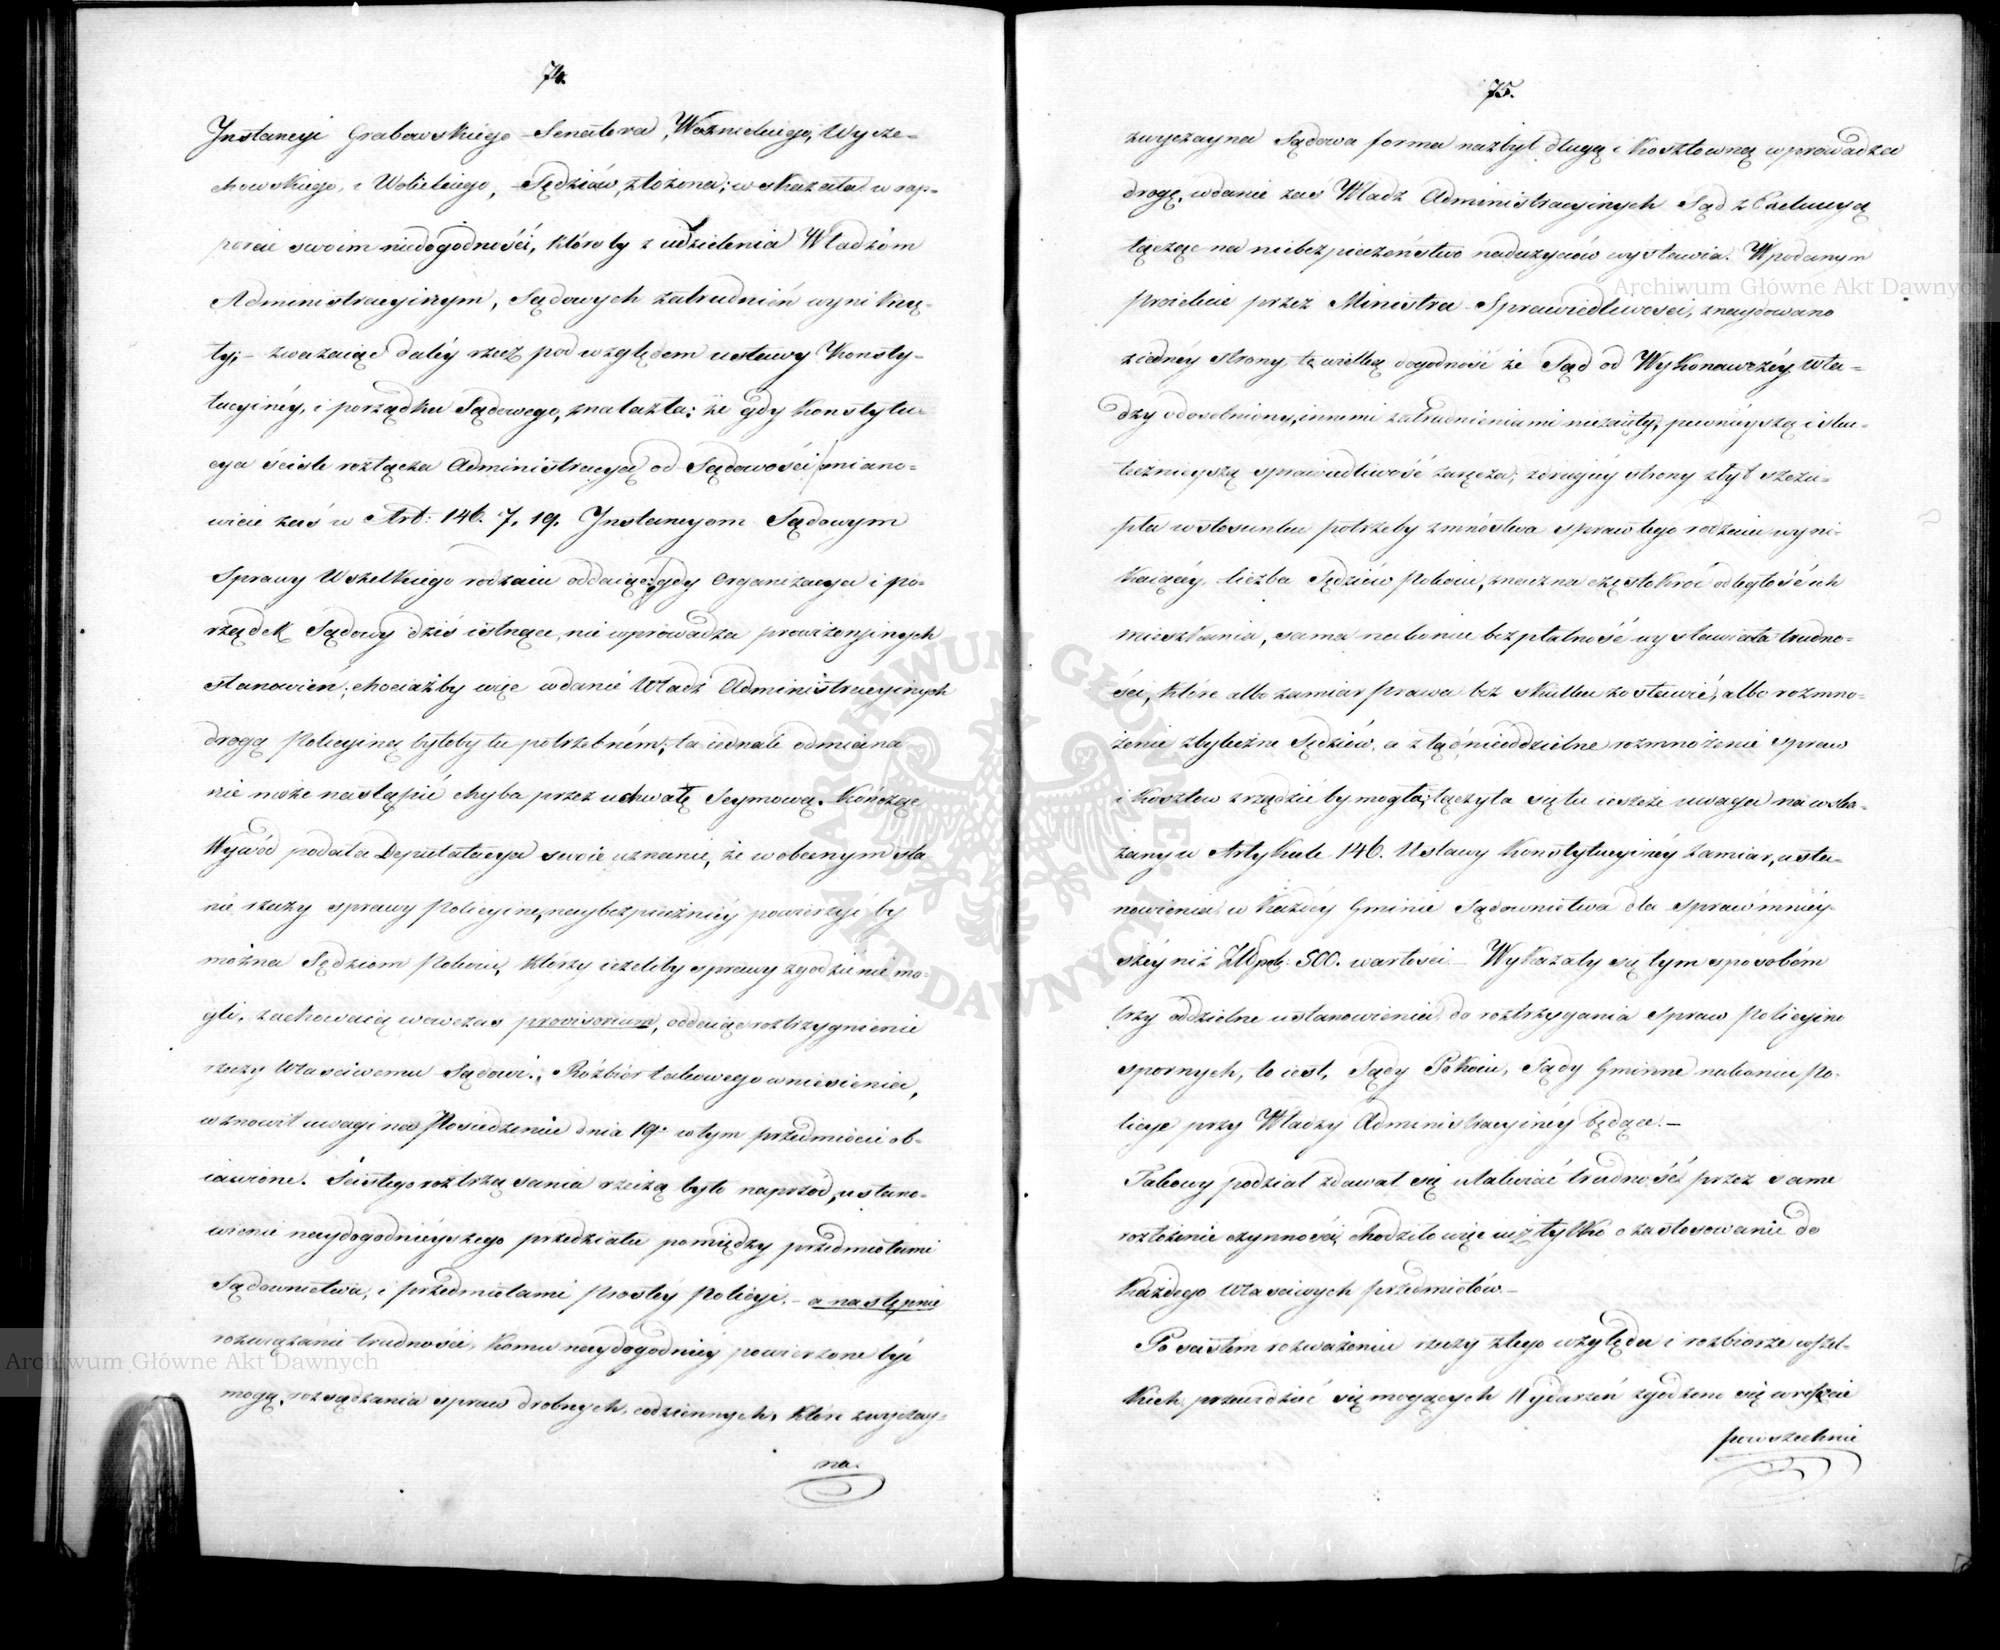 74.
Instancyi Grabowskiego Senatora, Woźnickiego, Wycze-
chowskiego, i Wolickiego, Sędziów, złożona; wskazała w rap-
porcie swoim niedogodności, któreby z udzielenia Władzom
Administracyinym, Sądowych zatrudnień wyniknę-
ły; – zważaiąc daléy rzecz pod względem ustawy Konsty-
tucyinéy, i porządku Sądowego, znalazła: że gdy Konstytu-
cya ściśle rozłącza Administracyą od Sądowości /miano-
wicie zaś w Art: 146. 7. 19. Instancyom Sądowym
Sprawy Wszelkiego rodzaiu oddaiąc/ gdy Organizacya i po-
rządek Sądowy dziś istnące, nie wprowadza prowizoryinych
stanowień; chociażby więc wdanie Władz Administracyinych
drogą Policyiną byłoby tu potrzebném; ta iednak odmiana
nie może nastąpić chyba przez uchwałę Seymową. Kończąc
Wywód podała Deputatacya swoie uznanie, że w obecnym sta
nie rzeczy sprawy Policyine, naybezpieczniéy powierzyć by
można Sędziom Pokoiu, którzy ieżeliby sprawy zgodzić nie mo-
gli, zachowaią wówczas provisorium, oddaiąc roztrzygnienie
rzeczy Właściwemu Sądowi. Rozbiór takowego wniesienia,
wznowił uwagi na Posiedzeniu dnia 19o w tym przedmiocie ob-
iawione. Ścisłego roztrząsania rzeczą było naprzód, ustano-
wienie naydogodnieyszego przedziału pomiędzy przedmiotami
Sądownictwa, i przedmiotami Prostéy Policyi. – a następnie
rozwiązanie trudności, komu naydogodniéy powierzone być
mogą, rozsądzania spraw drobnych, codziennych, które zwyczay-
na.
75.
zwyczayna Sądowa forma nazbyt długą i kosztowną wprowadza
drogę, wdanie zaś Władz Administracyinych Sąd z Exekucyą
łącząc na niebezpieczeństwo nadużyciów wystawia. W podanym
proiekcie przez Ministra Sprawiedliwości, znaydowano
z iednéy strony tę wielką dogodność że Sąd od Wykonawczéy Wła-
dzy odosobniony, innemi zatrudnieniami niezaięty, pewnieyszą i sku-
tecznieyszą sprawiedliwość zaręcza, z drugiéy strony zbyt szczu-
pła w stosunku potrzeby z mnóstwa spraw tego rodzaiu wyni-
kaiącéy, liczba Sędziów Pokoiu, znaczna częstokroć odległość ich
mieszkania, sama nakoniec bezpłatność wystawiała trudno-
ści, które albo zamiar prawa bez skutku zostawić, albo rozmno-
żenie zbyteczne Sędziów, a ztąd nieoddzielne rozmnożenie spraw
i kosztów zrządzić by mogła; łączyła się tu ieszcze uwaga na wska-
zany w Artykule 146. Ustawy Konstytucyinéy zamiar, usta-
nowienia w każdéy Gminie Sądownictwa dla Spraw mniéy-
széy niż Złpol: 500. wartości – Wykazały się tym sposobem
trzy oddzielne ustanowienia do roztrzygania Spraw Policyino
spornych, to iest, Sądy Pokoiu, Sądy Gminne nakoniec Po-
licye przy Władzy Administracyinéy będące. –
Takowy podział zdawał się ułatwiać trudność przez same
rozłożenie czynności, chodziło więc iuż tylko o zastosowanie do
każdego Właściwych przedmiotów. –
Po ścisłém rozważeniu rzeczy z tego względu i rozbiorze wszel-
kich przewidzieć się mogących Wydarzeń zgodzono się wreszcie
powszechnie
Archiwum Główne Akt Dawnych
Archiwum Główne Akt Dawnych
ARCHIWUM GŁÓWNE AKT DAWNYCH